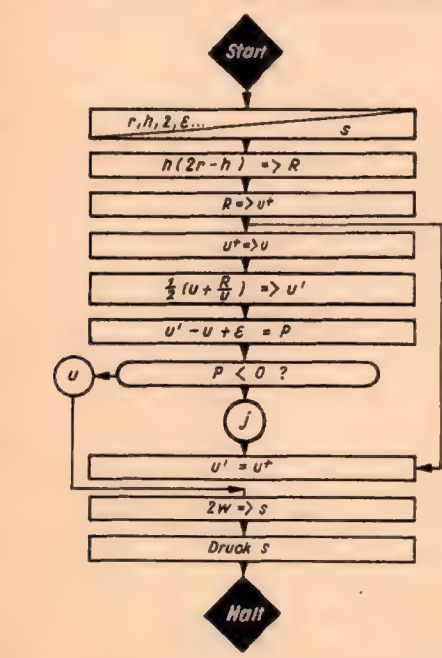 Start
r, h, 2, ε... s
h(2r-h) => R
R => u⁺
u⁺ => u
½ (u + R/u) => u'
u' - u + ε = P
P < 0 ?
u
j
u' = u⁺
2w => s
Druck s
Halt